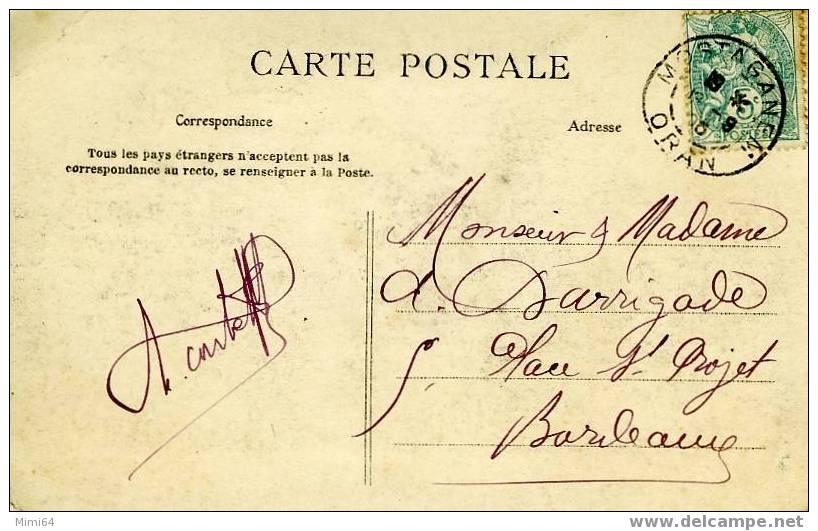 CARTE POSTALE
Correspondance
Adresse
Tous les pays étrangers n'acceptent pas la
correspondance au recto, se renseigner à la Poste.
MOSTAGANEM
ORAN
POSTES
Monsieur & Madame
A. Darrigade
5, Place St Projet
Bordeaux
Mimi64
www.delcampe.net